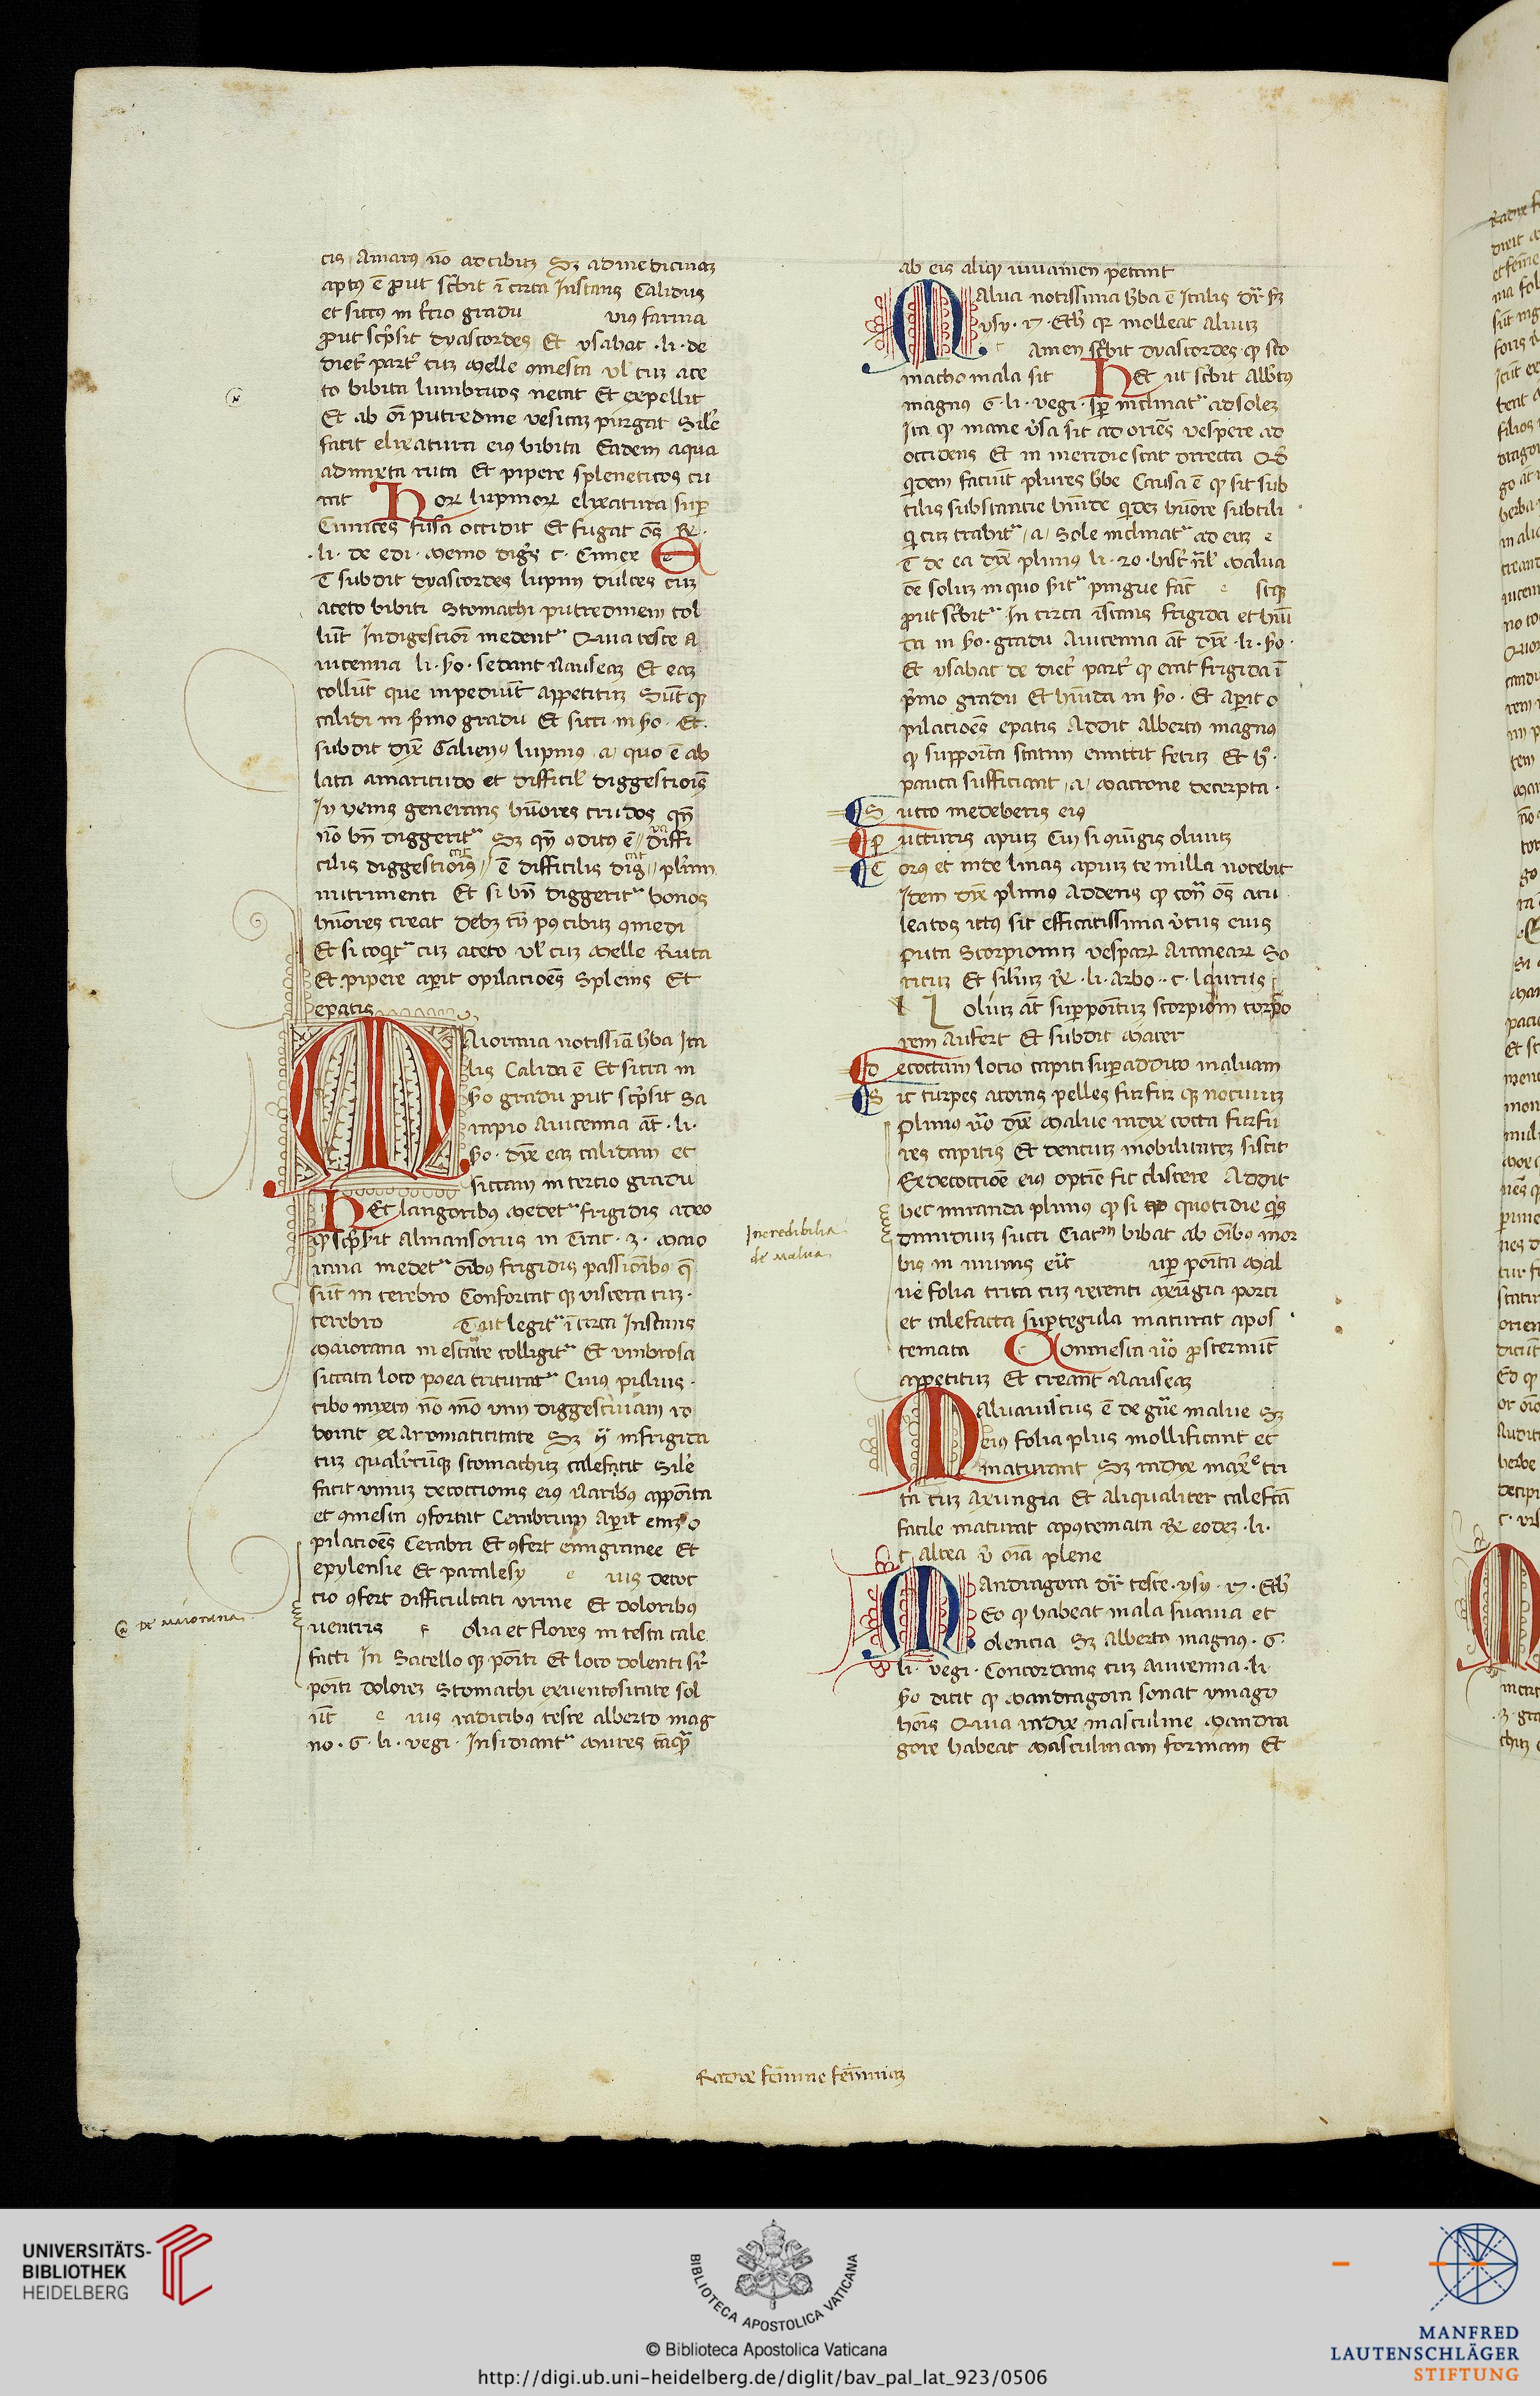 cis Amarus nō ad cibuꝫ Sꝫ ad medicinaꝫ
aptꝰ ē ꝓut sc͛bit ī circa Instans Calidus
et siccꝰ in t͛cio gradu uiꝰ farina
ꝓut sc͛psit dyascordes Et vsabat · li · de
diet͛ part͛ cuꝫ melle ꝯmesta ul͛ cuꝫ ace
to bibita lumbricos necat Et expellit
Et ab oī putredine vesicaꝫ purgat Sil͛r
facit elixatura eiꝰ bibita Eadem aqua
admixta ruta Et pipere spleneticos cu
rat Hoꝝ lupinoꝝ elixatura suꝑ
Cimices fusa occidit Et fugat oēs Re ·
· li · de edi · c · Cimex
subdit dyascordes lupini dulces cuꝫ
aceto bibiti Stomachi putredinem tol
lūt Indigestioī medent͛ Quia teste a
uicenna li · 2o · sedant Nauseaꝫ Et eaꝫ
tollūt que inpediūt appetituꝫ Sūt qꝫ
calidi in p͛mo gradu Et sicci in 2o · Et
subdit dix͛ Galienꝰ lupinꝰ · a · quo ē ab
lata amaritudo et difficil͛ diggestiois
In venis generans hūores crudos qn̄
nō bn̄ diggerit͛ Sꝫ qn̄ ꝯditꝰ ē diffi
cilis diggestiois ē difficilis plurim
nutrimenti Et si bn̄ diggerit͛ bonos
hūores creat Debꝫ tn̄ pꝰ cibuꝫ ꝯmedi
Et si coqͥt͛ cuꝫ aceto ul͛ cuꝫ melle Ruta
Et pipere aꝑit opilacioēs Splenis Et
epatis
Maiorana notissīa h͛ba Ita
lis Calida ē Et sicca in
2o gradu ꝓut sc͛psit Sa
rapio Auicenna āt · li ·
2o · dix͛ eaꝫ calidam et
siccam in tercio gradu
Het langoribꝰ medet͛ frigidis adeo
qꝫ sc͛psit Almansorius in Trat · 3 · Maio
rana medet͛ oībꝰ frigidis passioībꝰ q̄
sūt in cerebro Confortat qꝫ viscera cuꝫ ·
cerebro Et ut legit͛ ī circa Instans
Maiorana in estate colligit͛ Et vmbrosa
siccata loco pͦea triturat͛ Cuiꝰ puluis ·
cibo mixtꝰ nō mō vim diggestiuam ro
borat ex Aromaticitate Sꝫ infrigida
tuꝫ qualit͛cūqꝫ stomachuꝫ calefacit Sil͛r
facit vinuꝫ decoctionis eiꝰ Naribꝰ apposita
et ꝯmesta ꝯfortat Cerebrum Aꝑit etiaꝫ o
pilacioēs Cerebri Et ꝯfert emigranee Et
epylensie Et paralesy e ius decoc
tio ꝯfert difficultati vrine Et doloribꝰ
uentris f olia et flores in testa cale
facti In Sacello qꝫ poīti Et loco dolenti su͛
poīti dolorez Stomachi ex uentositate sol
uūt e ius radicibꝰ teste alberto mag
no · 6 · li · vegi · Insidiant͛ mures tāqꝫ
@ de maiorana
ab eis aliqꝫ iuuamen petant
Malua notissima h͛ba ē Italis dr͛ fꝫ
vsy · 17 · Eth͛ qꝫ molleat aluuꝫ
t amen sc͛bit dyascordes qꝫ sto
macho mala sit Het ut sc͛bit alb͛tꝰ
magnꝰ 6 · li · vegi · sꝑ inclinat͛ ad solez
Ita qꝫ mane u͛sa sit ad oriēs vespere ad
occidens Et in meridie stat directa Qd̄
qͥdem faciūt plures h͛be Causa ē qꝫ sit sub
tilis substantie humide qͥdeꝫ hūore subtili
qͥ cuꝫ trahit͛ · a · sole inclinat͛ ad euꝫ e
T de ea dix͛ plinius li · 20 · hist͛ nal͛ Malua
oē soluꝫ in quo sit͛ pingue fac͛ e stqꝫ
ꝓut sc͛bit͛ In circa īstans frigida et hūi
da in 2o · gradu Auicenna āt dix͛ · li · 2o ·
Et vsabat de diet͛ part͛ qꝫ erat frigida ī
p͛mo gradu Et hūida in 2o · Et aꝑit o
pilacioēs epatis Addit Albertꝰ magnꝰ
qꝫ suppoīta statim emittit fetuꝫ Et h͛ ·
pauca sufficiant · a · Macrone decerpta ·
Succo medeberis eiꝰ
Puncturis apuꝫ Cui si iungis oliuuꝫ
Corꝰ et inde linas apuꝫ te nulla nocebit
Item dix͛ plinius Addens qꝫ contͣ oēs acu
leatos ictꝰ sit efficatissima v͛tus eius
puta Scorpionuꝫ vespaꝝ Araneaꝝ So
ricuꝫ Et siliuꝫ Re · li · Arbo · c · laurus
f oliuꝫ āt suppoītuꝫ scorpioni torpo
rem Aufert Et subdit Macer
Decoctam locio capiti suꝑaddito maluam
Sic turpes acoras pelles furfur qꝫ nociuuꝫ
Plinius u͛o dix͛ Malue radix cocta furfu
res capitis Et dentuꝫ mobilitatez sistit
Ex decoctioē eiꝰ optie fit clistere Addit
hec miranda plinius qꝫ si quotidie qͥs
dimidiuꝫ succi Ciat͛m bibat ab oībꝰ mor
bis in munis eūt uꝑ poīta Mal
ue folia trita cuꝫ recenti axūgia porci
et calefacta suꝑ tegula maturat apos
temata Comesta u͛o ꝓsterniūt
appetituꝫ Et creant Nauseaꝫ
Incredibilia
de malua
Maluauiscus ē de gn͛e malue Sꝫ
eiꝰ folia plus mollificant et
maturant Sꝫ radix maxͤ tri
ta cuꝫ Axungia Et aliqualiter calefcā
facile maturat apostemata Re eodeꝫ · li ·
c altea u͛ oīa plene
Mandragora dr͛ teste · vsy · 17 · Eth͛
Eo qꝫ habeat mala suauia et
olencia Sꝫ Albertꝰ magnꝰ · 6 ·
li · vegi · Concordans cuꝫ Auicenna · li ·
2o dicit qꝫ Mandragora sonat ymago
hoīs Quia radix masculine Mandra
gore habeat Masculinam formam Et
Radix femine feminaꝫ
UNIVERSITÄTS-
BIBLIOTHEK
HEIDELBERG
BIBLIOTECA APOSTOLICA VATICANA
© Biblioteca Apostolica Vaticana
http://digi.ub.uni-heidelberg.de/diglit/bav_pal_lat_923/0506
MANFRED
LAUTENSCHLÄGER
STIFTUNG